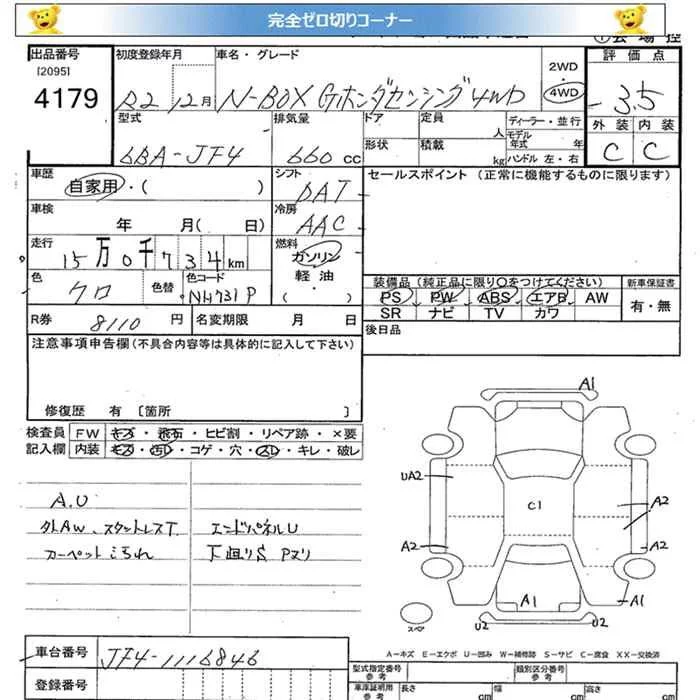 完全ゼロ切りコーナー
出品番号
[2095]
4179
初度登録年月
R2 12月
車名・グレード
N-BOX Gホンダセンシング4WD
2WD・4WD
評価点
3.5
外装 内装
C C
型式
6BA-JF4
排気量
660 cc
ドア
定員
人
形状
積載
kg
ディーラー・並行
モデル年式 年
ハンドル 左・右
車歴
自家用・( )
シフト
DAT
セールスポイント (正常に機能するものに限ります)
車検
年 月( 日)
冷房
AAC
走行
15万0千734km
燃料
ガソリン・軽油・( )
色
クロ
色替
色コード
NH731P
装備品(純正品に限り○をつけてください)
新車保証書
PS PW ABS エアB AW
SR ナビ TV カワ
有・無
R券 8110円
名変期限 月 日
後日品
注意事項申告欄(不具合内容等は具体的に記入して下さい)
修復歴 有 [箇所 ]
検査員記入欄
FW キズ・飛石・ヒビ割・リペア跡・×要
内装 キズ・汚レ・コゲ・穴・スレ・キレ・破レ
A.U
外AW、スタットレスT.
カーペットこられ
エンドパネルU
下廻りS Pヌリ
A1
UA2
C1
A2
A2
A2
A1
A1
U2
U2
スペア
A-キズ E-エクボ U-凹み W-補修跡 S-サビ C-腐食 XX-交換済
車台番号
JF4-1116846
登録番号
型式指定番号 参考
類別区分番号 参考
車庫証明用 参考
長さ cm
幅 cm
高さ cm